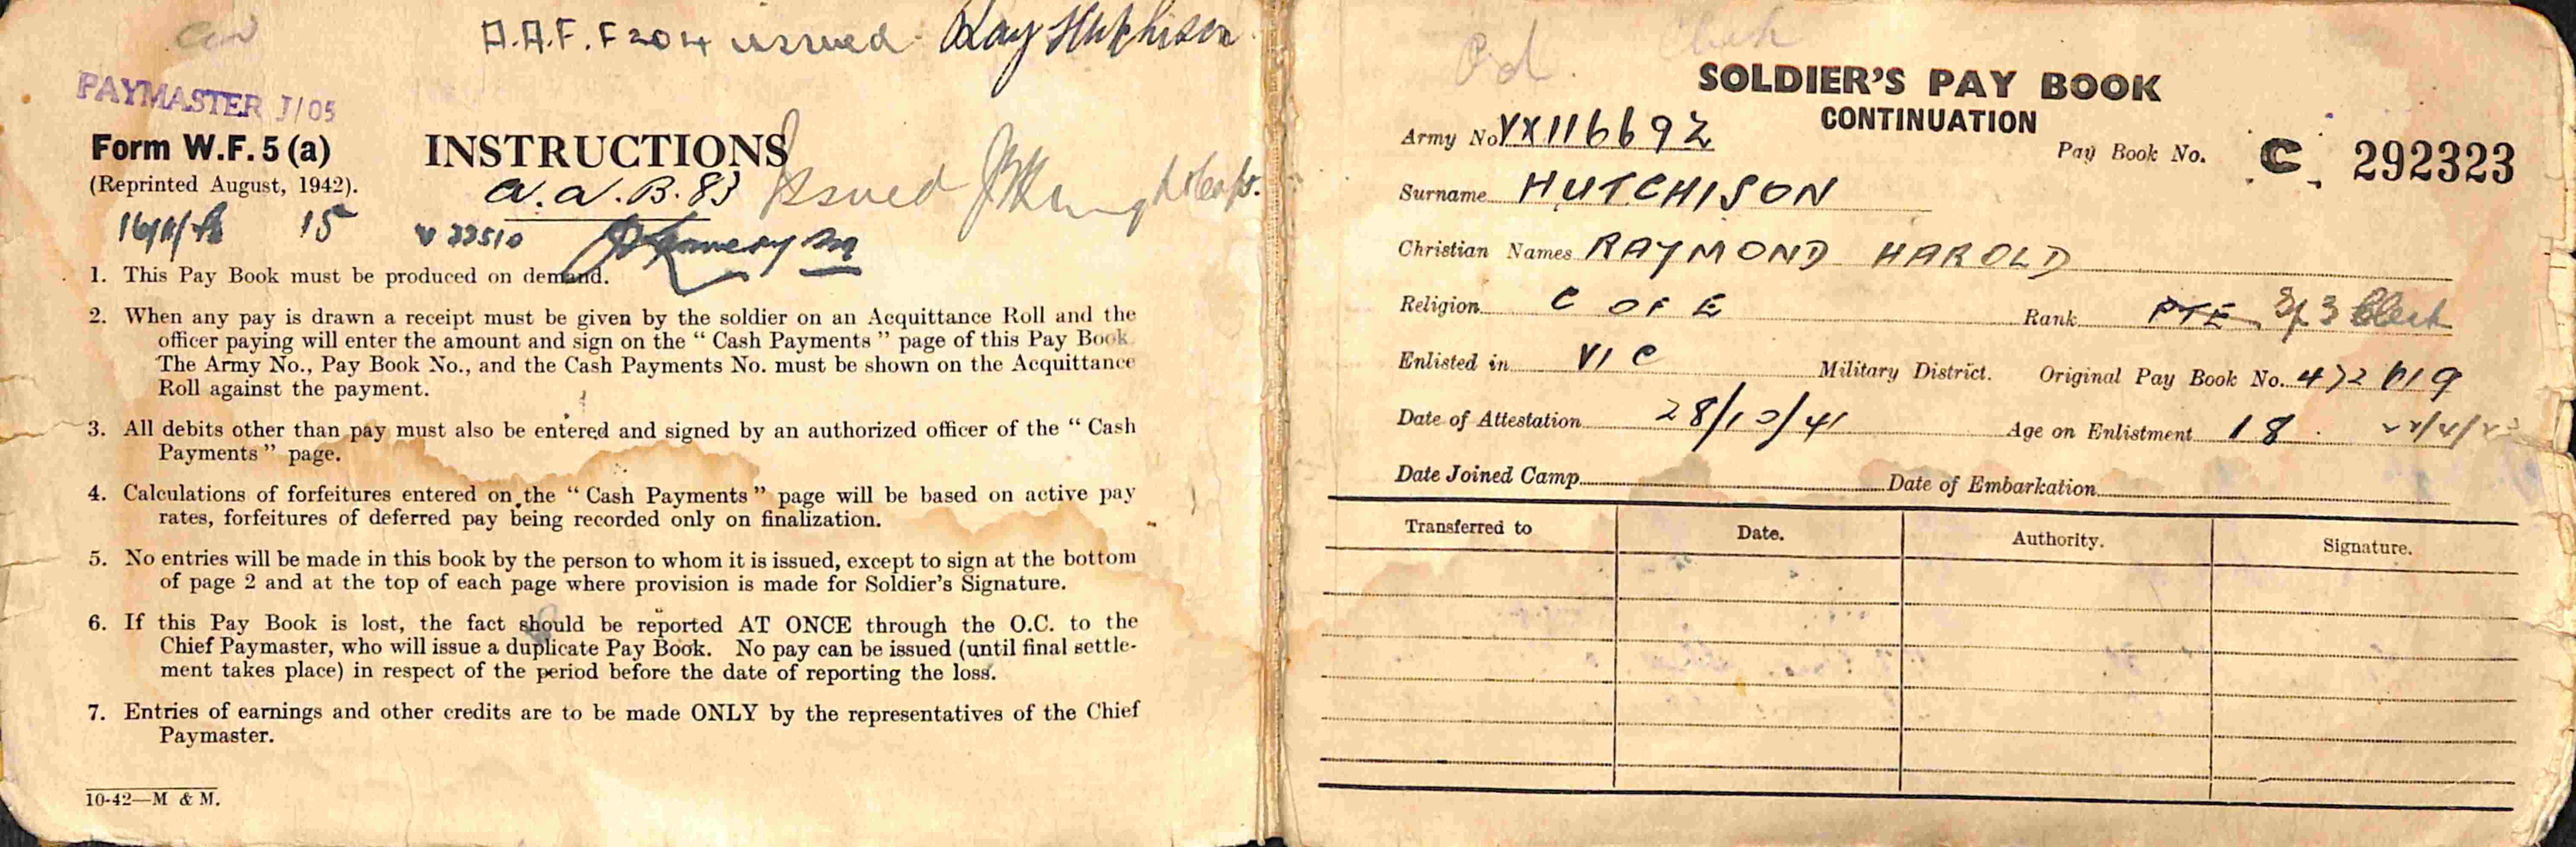 A.A.F. F204 issued Ray Hutchison
PAYMASTER J/05
Form W.F. 5 (a)
(Reprinted August, 1942).
INSTRUCTIONS
a.a.B.83 Issued
15
V 22510
1. This Pay Book must be produced on demand.
2. When any pay is drawn a receipt must be given by the soldier on an Acquittance Roll and the
officer paying will enter the amount and sign on the “ Cash Payments ” page of this Pay Book
The Army No., Pay Book No., and the Cash Payments No. must be shown on the Acquittance
Roll against the payment.
3. All debits other than pay must also be entered and signed by an authorized officer of the “ Cash
Payments ” page.
4. Calculations of forfeitures entered on the “ Cash Payments ” page will be based on active pay
rates, forfeitures of deferred pay being recorded only on finalization.
5. No entries will be made in this book by the person to whom it is issued, except to sign at the bottom
of page 2 and at the top of each page where provision is made for Soldier’s Signature.
6. If this Pay Book is lost, the fact should be reported AT ONCE through the O.C. to the
Chief Paymaster, who will issue a duplicate Pay Book. No pay can be issued (until final settle-
ment takes place) in respect of the period before the date of reporting the loss.
7. Entries of earnings and other credits are to be made ONLY by the representatives of the Chief
Paymaster.
10-42—M & M.
SOLDIER’S PAY BOOK
CONTINUATION
Army No VX116692
Pay Book No. C 292323
Surname HUTCHISON
Christian Names RAYMOND HAROLD
Religion C OF E Rank PTE
Enlisted in VIC Military District. Original Pay Book No. 472619
Date of Attestation 28/10/41 Age on Enlistment 18
Date Joined Camp Date of Embarkation
Transferred to Date. Authority. Signature.